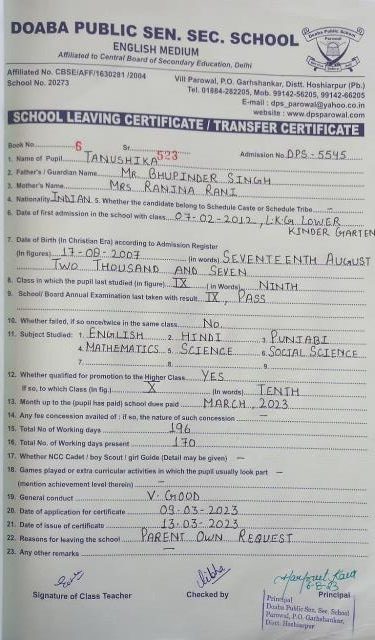 DOABA PUBLIC SEN. SEC. SCHOOL
ENGLISH MEDIUM
Affiliated to Central Board of Secondary Education, Delhi
Affiliated No. CBSE/AFF/1630281 /2004
School No. 20273
Vill Parowal, P.O. Garhshankar, Distt. Hoshiarpur (Pb.)
Tel. 01884-282205, Mob. 99142-56205, 99142-66205
E-mail : dps_parowal@yahoo.co.in
website : www.dpsparowal.com
SCHOOL LEAVING CERTIFICATE / TRANSFER CERTIFICATE
Book No. 6 Sr. 523 Admission No. DPS-5545
1. Name of Pupil TANUSHIKA
2. Father's / Guardian Name MR. BHUPINDER SINGH
3. Mother's Name MRS RANJNA RANI
4. Nationality INDIAN 5. Whether the candidate belong to Schedule Caste or Schedule Tribe -
6. Date of first admission in the school with class 07-02-2012, L.K.G LOWER
KINDER GARTEN
7. Date of Birth (In Christian Era) according to Admission Register
(In figures) 17-08-2007 (in words) SEVENTEENTH AUGUST
TWO THOUSAND AND SEVEN
8. Class in which the pupil last studied (in figure) IX (in Words) NINTH
9. School / Board Annual Examination last taken with result IX, PASS
10. Whether failed, if so once/twice in the same class No.
11. Subject Studied: 1. ENGLISH 2. HINDI 3. PUNJABI
4. MATHEMATICS 5. SCIENCE 6. SOCIAL SCIENCE
7. 8. 9.
12. Whether qualified for promotion to the Higher Class YES
If so, to which Class (in fig.) X (In words) TENTH
13. Month up to the (pupil has paid) school dues paid MARCH, 2023
14. Any fee concession availed of : if so, the nature of such concession -
15. Total No. of Working days 196
16. Total No. of Working days present 170
17. Whether NCC Cadet / boy Scout / girl Guide (Detail may be given) -
18. Games played or extra curricular activities in which the pupil usually look part -
(mention achievement level therein) -
19. General conduct V. GOOD
20. Date of application for certificate 09-03-2023
21. Date of issue of certificate 13-03-2023
22. Reasons for leaving the school PARENT OWN REQUEST
23. Any other remarks -
Signature of Class Teacher
Checked by
Principal
Principal
Doaba Public Sen. Sec. School
Parowal, P.O. Garhshankar,
Distt. Hoshiarpur